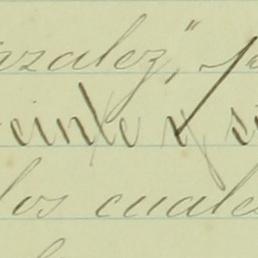 nzalez,"
veinte y si
los cuales